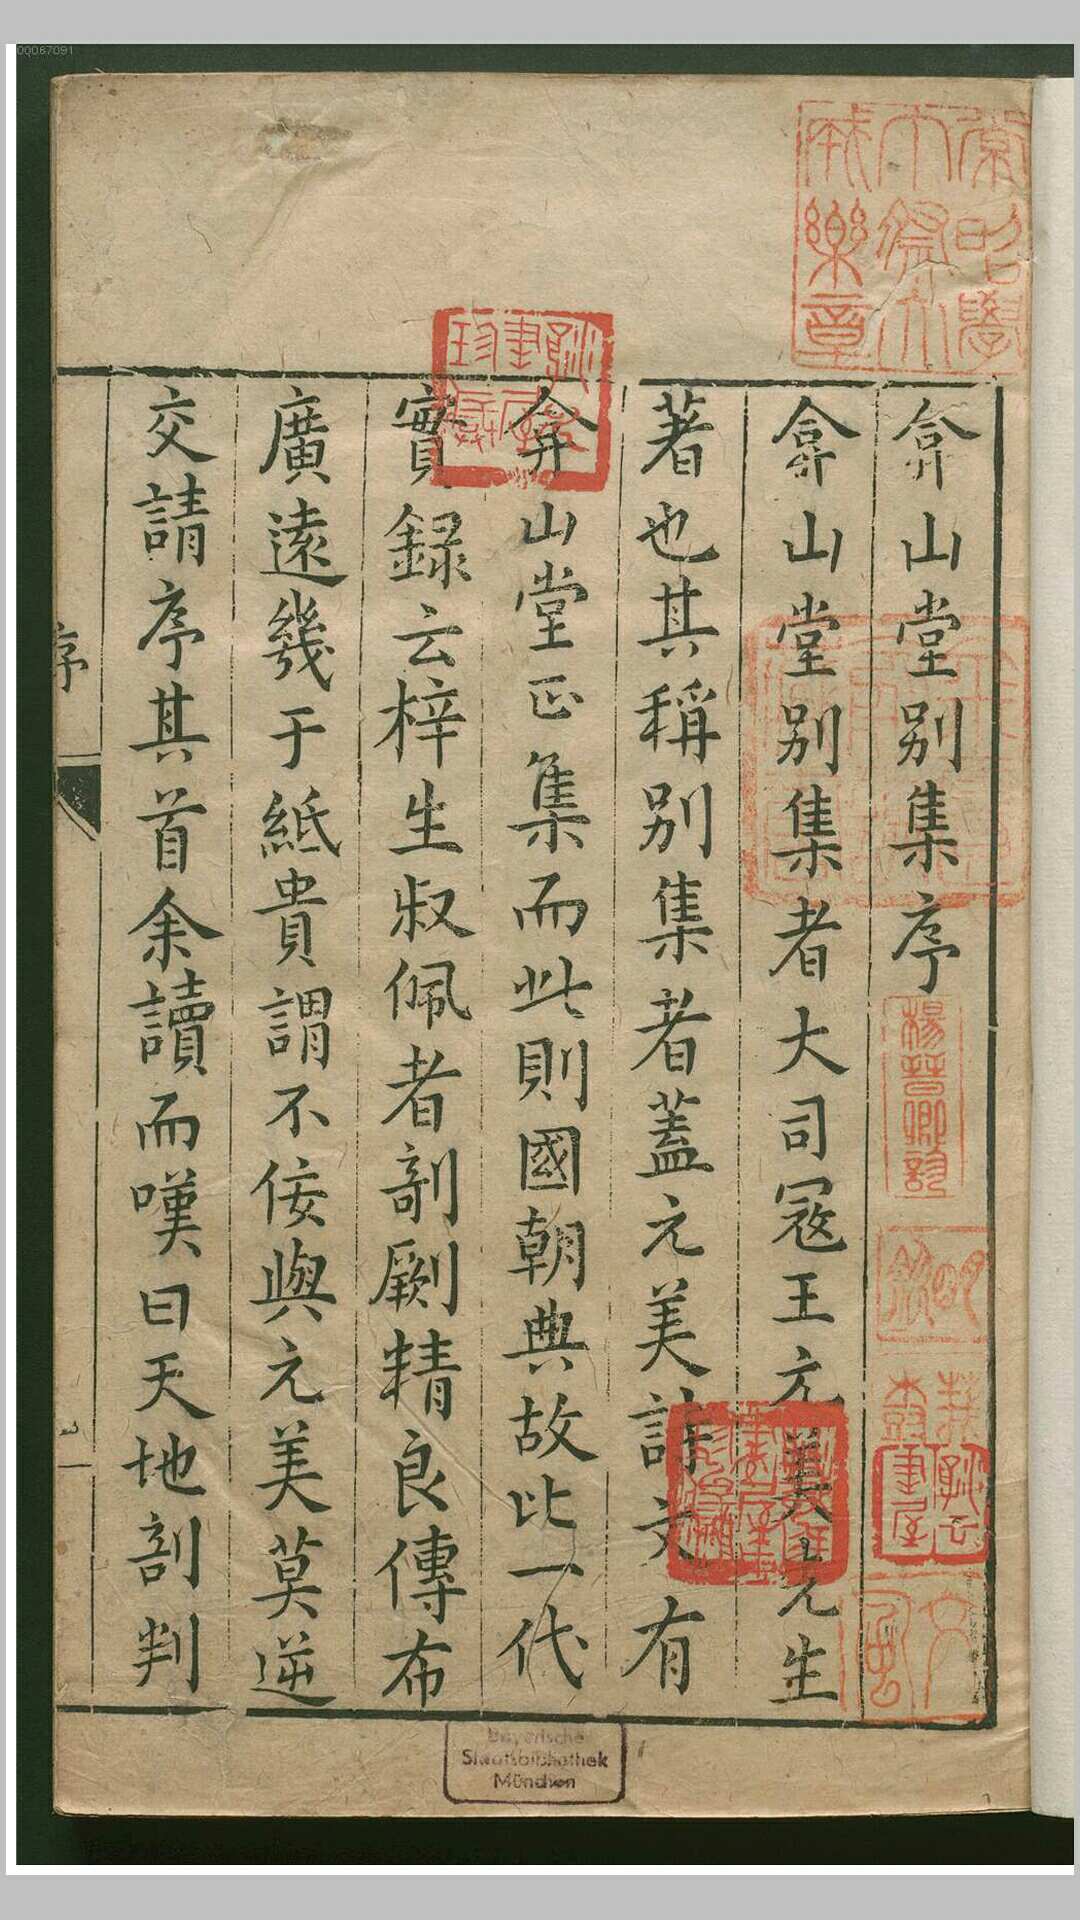 弇山堂別集序
弇山堂別集者大司寇王元美先生
著也其稱別集者蓋元美詩文有
弇山堂正集而此則國朝典故比一代
實錄云梓生叔佩者剞劂精良傳布
廣遠幾于紙貴謂不佞與元美莫逆
交請序其首余讀而嘆曰天地剖判
序
一
Bayerische
Staatsbibliothek
München
00067091